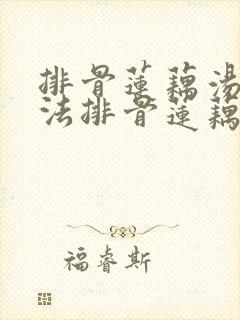 排骨蓮藕湯
法排骨蓮藕
福睿斯